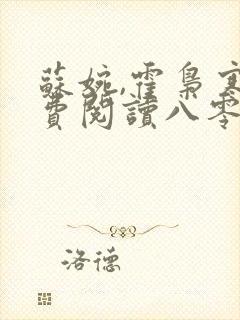 蘇婉,霍梟寒
費閱讀八零
洛德